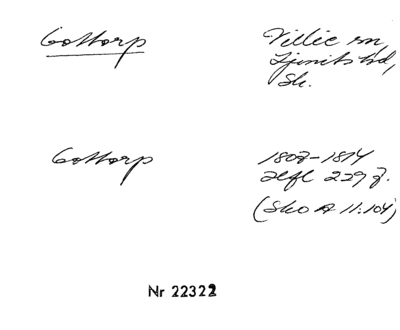 Gottorp
Villie sn,
Ljunits hd,
Sk.
Gottorp
1808-1814
afl 229 f.
(Sko A 11:104)
Nr 22322